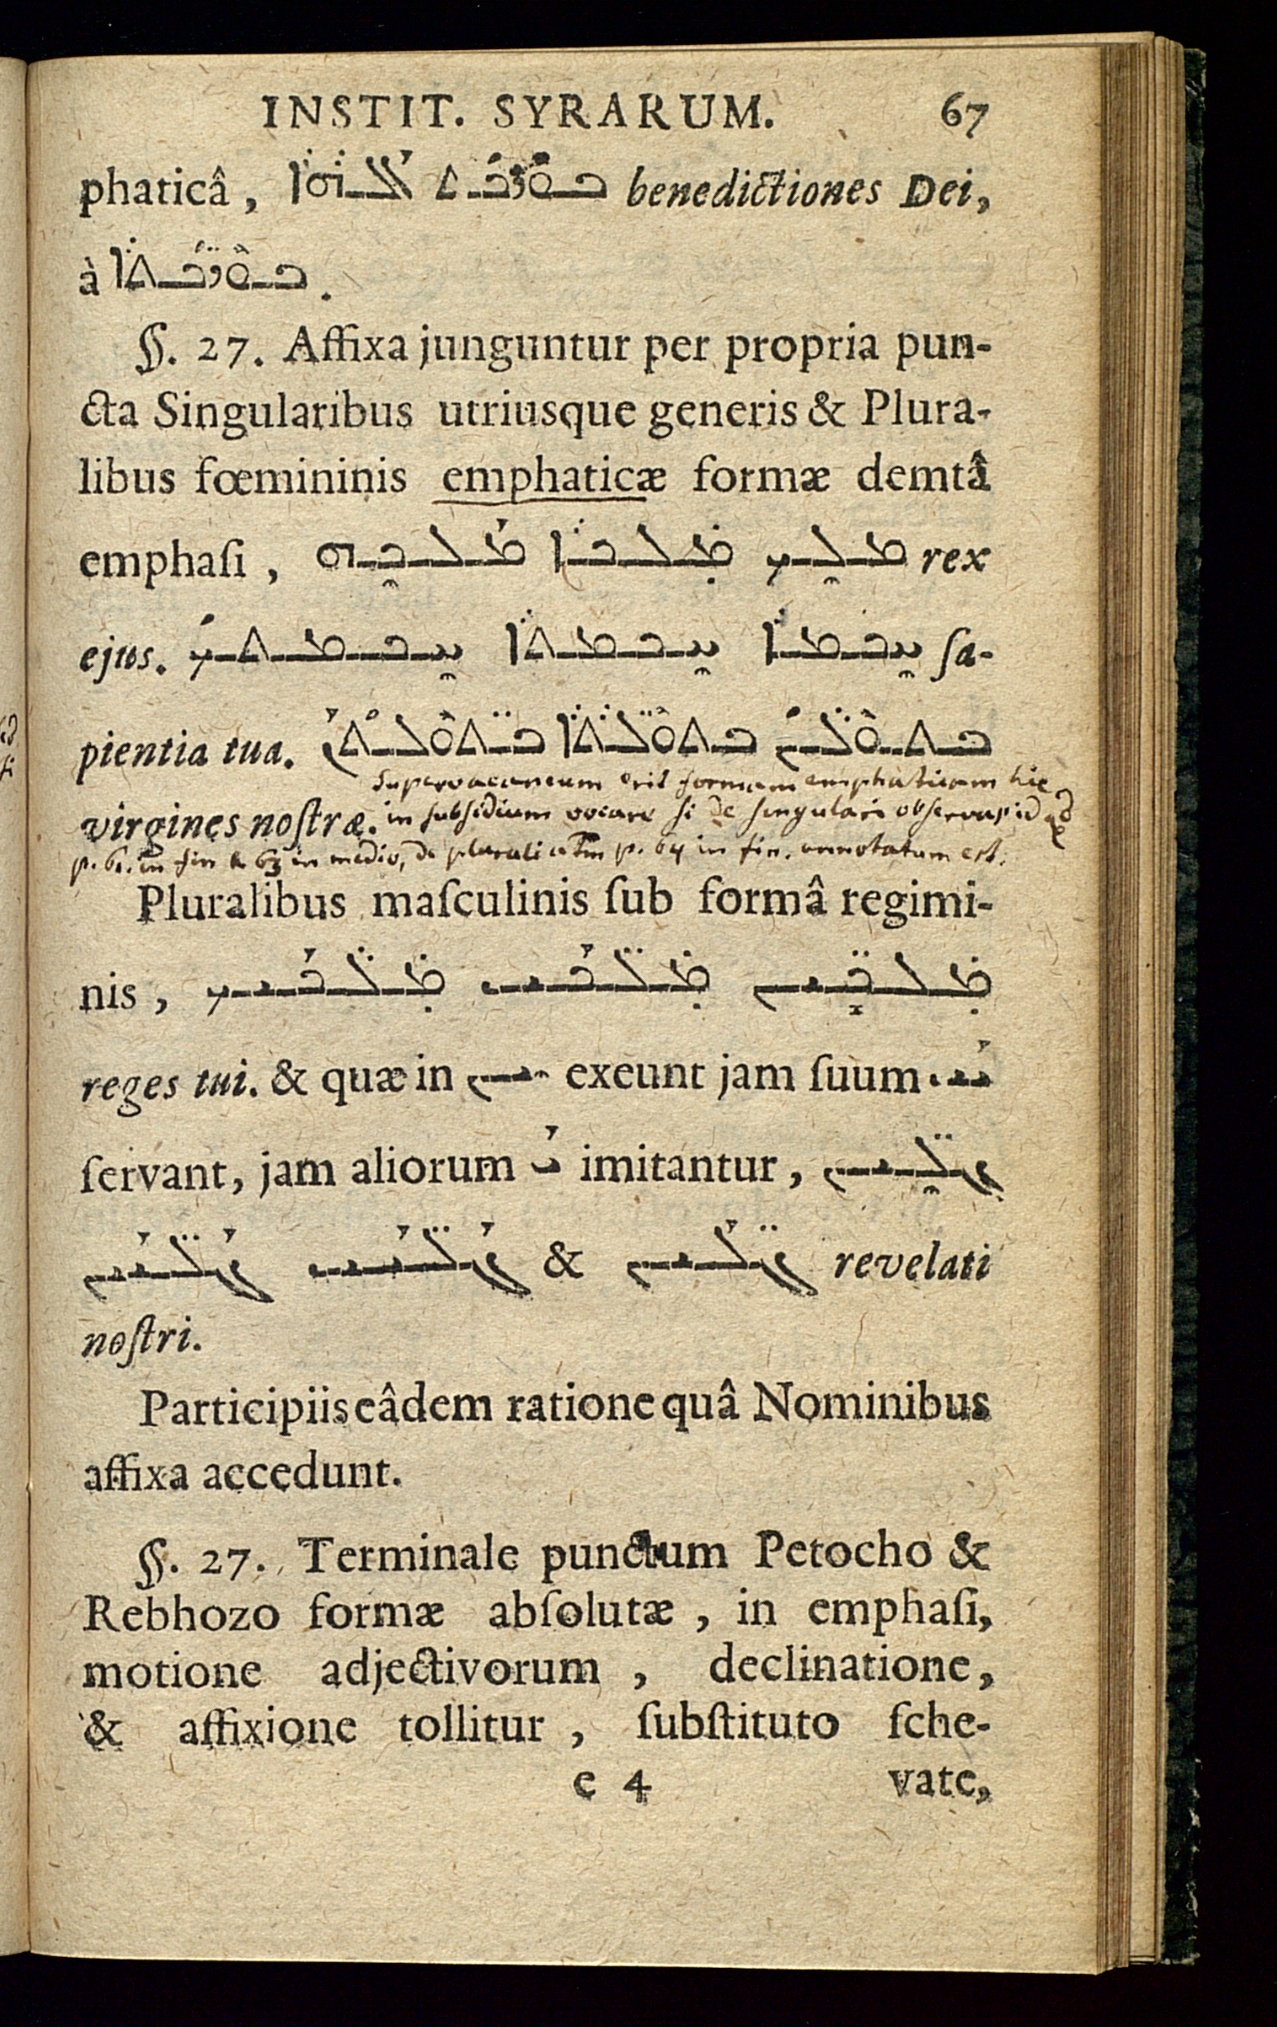 INSTIT. SYRARUM. 67
phaticâ, ܒܘܪܟܬ ܐܠܗܐ benedictiones Dei,
à ܒܘܪܟܬܐ.
§. 27. Affixa junguntur per propria pun-
cta Singularibus utriusque generis & Plura-
libus fœmininis emphaticæ formæ demtâ
emphaſi, ܡܠܟ ܡܠܟܐ ܡܠܟܗ rex
ejus. ܚܟܡܐ ܚܟܡܬܐ ܚܟܡܬܟ ſa-
pientia tua. ܒܬܘܠܢ ܒܬܘܠܬܐ ܒܬܘܠܬܢ
Supervacaneum erit formam emphaticam hic
virgines noſtræ. in subsidium vocare si de singulari observas id qd
p. 61. in fin & 63 in medio, de plurali p. 64 in fin. annotatum est.
Pluralibus maſculinis ſub formâ regimi-
nis, ܡܠܟܝܢ ܡܠܟܝ ܡܠܟܝܟ
reges tui. & quæ in ܝܢ exeunt jam ſuum ܝܝ
ſervant, jam aliorum ܝ imitantur, ܓܠܝܢ
& ܓܠܝܢ ܓܠܝܝ ܓܠܝܢ revelati
noſtri.
Participiis eâdem ratione quâ Nominibus
affixa accedunt.
§. 27. Terminale punctum Petocho &
Rebhozo formæ abſolutæ, in emphaſi,
motione adjectivorum, declinatione,
& affixione tollitur, ſubſtituto ſche-
e 4 vate,